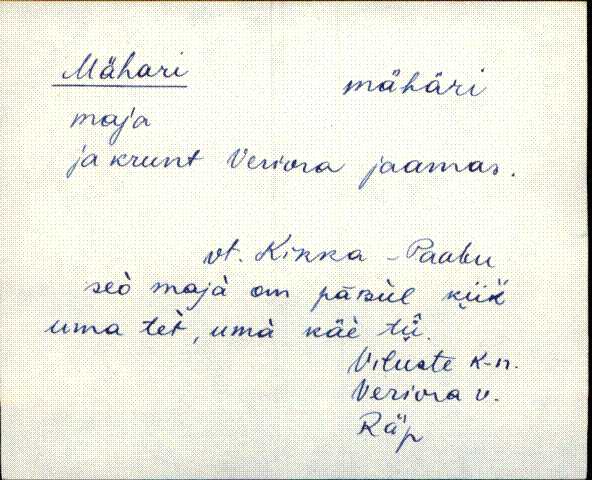 Mähari mähäri
maja
ja krunt Veriora jaamas.
vt. Kikka-Paabu
seò majà om päzùl kùiḱ
uma tèt, umà käè tǖ.
Viluste k-n.
Veriora v.
Räp